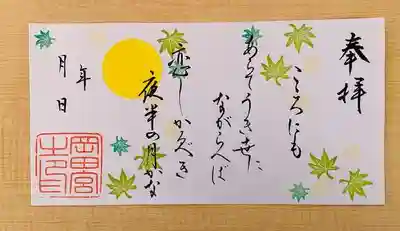 奉拝
こゝろにも
あらでうき世に
ながらへば
恋しかるべき
夜半の月かな
年
月日
岡田宮
之印